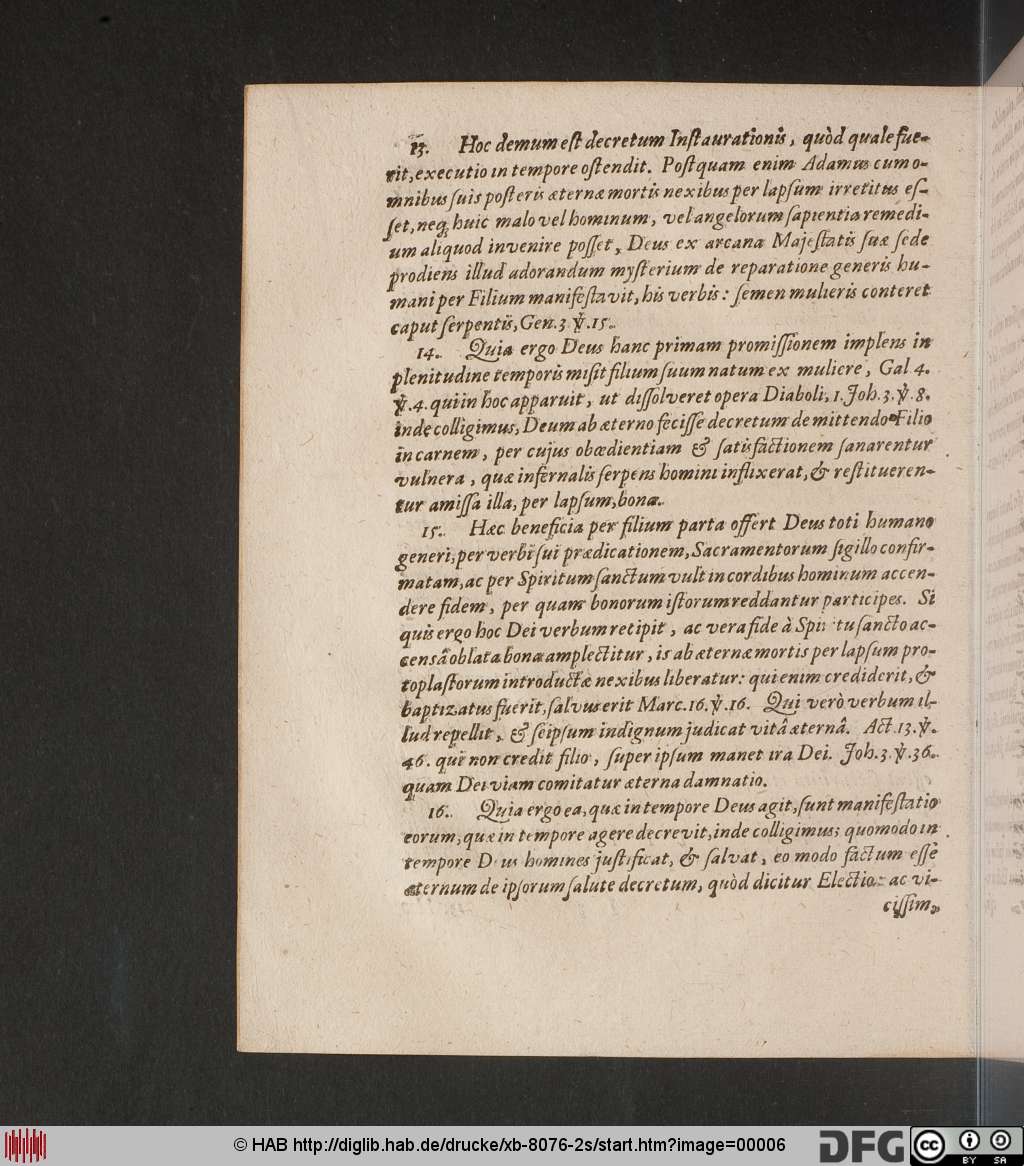 13. Hoc demum eſt decretum Inſtaurationis, quòd quale fue-
rit, executio in tempore oſtendit. Poſtquam enim Adamus cum o-
mnibus ſuis poſteris æternæ mortis nexibus per lapſum irretitus eſ-
ſet, neq; huic malo vel hominum, vel angelorum ſapientia remedi-
um aliquod invenire poſſet, Deus ex arcana Majeſtatis ſuæ ſede
prodiens illud adorandum myſterium de reparatione generis hu-
mani per Filium manifeſtavit, his verbis: ſemen mulieris conteret
caput ſerpentis, Gen. 3 ℣. 15.
14. Quia ergo Deus hanc primam promiſſionem implens in
plenitudine temporis miſit filium ſuum natum ex muliere, Gal 4.
℣. 4. qui in hoc apparuit, ut diſſolveret opera Diaboli, 1. Joh. 3. ℣. 8.
inde colligimus, Deum ab æterno feciſſe decretum de mittendo Filio
in carnem, per cujus obœdientiam & ſatisfactionem ſanarentur
vulnera, quæ infernalis ſerpens homini inflixerat, & reſtitueren-
tur amiſſa illa, per lapſum, bona.
15. Hæc beneficia per filium parta offert Deus toti humano
generi, per verbi ſui prædicationem, Sacramentorum ſigillo confir-
matam, ac per Spiritum ſanctum vult in cordibus hominum accen-
dere fidem, per quam bonorum iſtorum reddantur participes. Si
quis ergo hoc Dei verbum retipit, ac vera fide à Spiritu ſancto ac-
censâ oblata bona amplectitur, is ab æternæ mortis per lapſum pro-
toplaſtorum introductæ nexibus liberatur: qui enim crediderit, &
baptizatus fuerit, ſalvus erit Marc. 16. ℣. 16. Qui verò verbum il-
lud repellit, & ſeipſum indignum judicat vitâ æternâ. Act. 13. ℣.
46. qui non credit filio, ſuper ipſum manet ira Dei. Joh. 3. ℣. 36.
quam Dei viam comitatur æterna damnatio.
16. Quia ergo ea, quæ in tempore Deus agit, ſunt manifeſtatio
eorum, quæ in tempore agere decrevit, inde colligimus; quomodo in
tempore Deus homines juſtificat, & ſalvat, eo modo factum eſſe
æternum de ipſorum ſalute decretum, quòd dicitur Electio: ac vi-
ciſſim,
© HAB http://diglib.hab.de/drucke/xb-8076-2s/start.htm?image=00006
DFG
cc BY SA